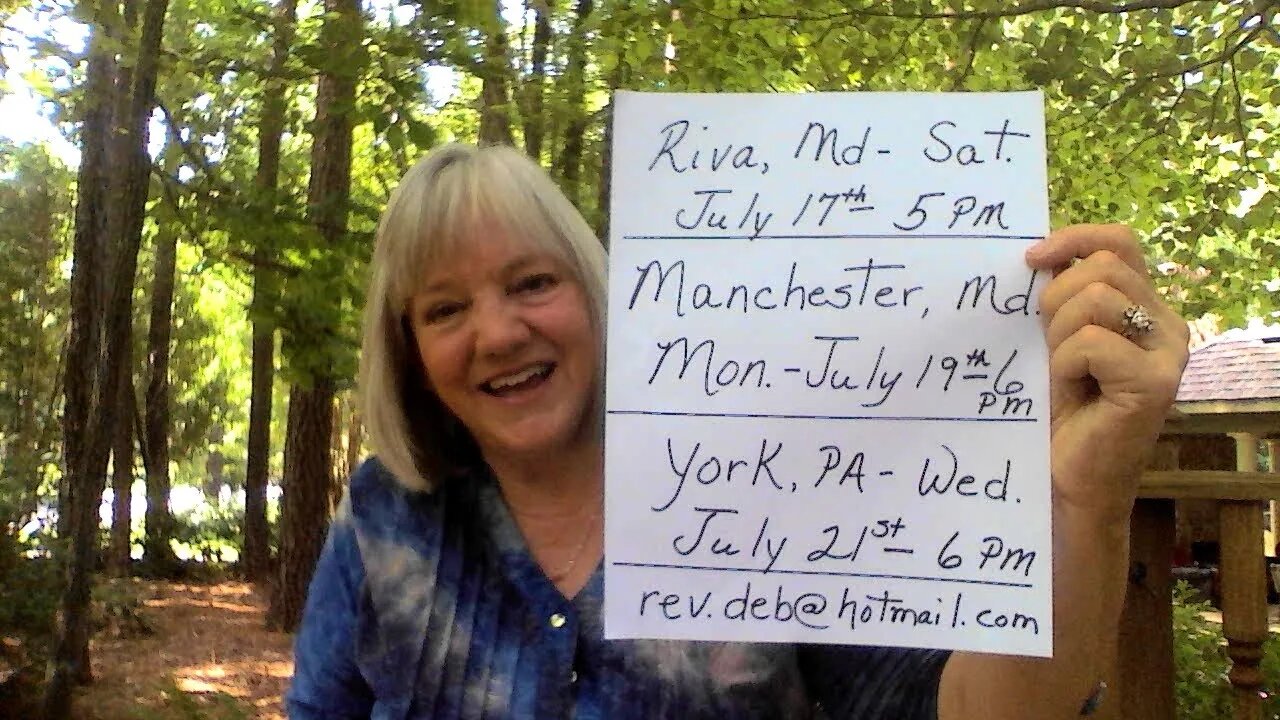 Riva, Md- Sat.
July 17th- 5 PM
Manchester, Md.
Mon.-July 19th-6 PM
York, PA- Wed.
July 21st- 6 PM
rev.deb@hotmail.com